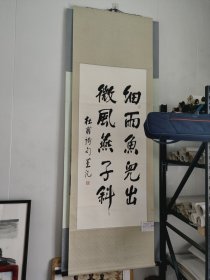 细雨鱼儿出
微风燕子斜
杜甫诗句